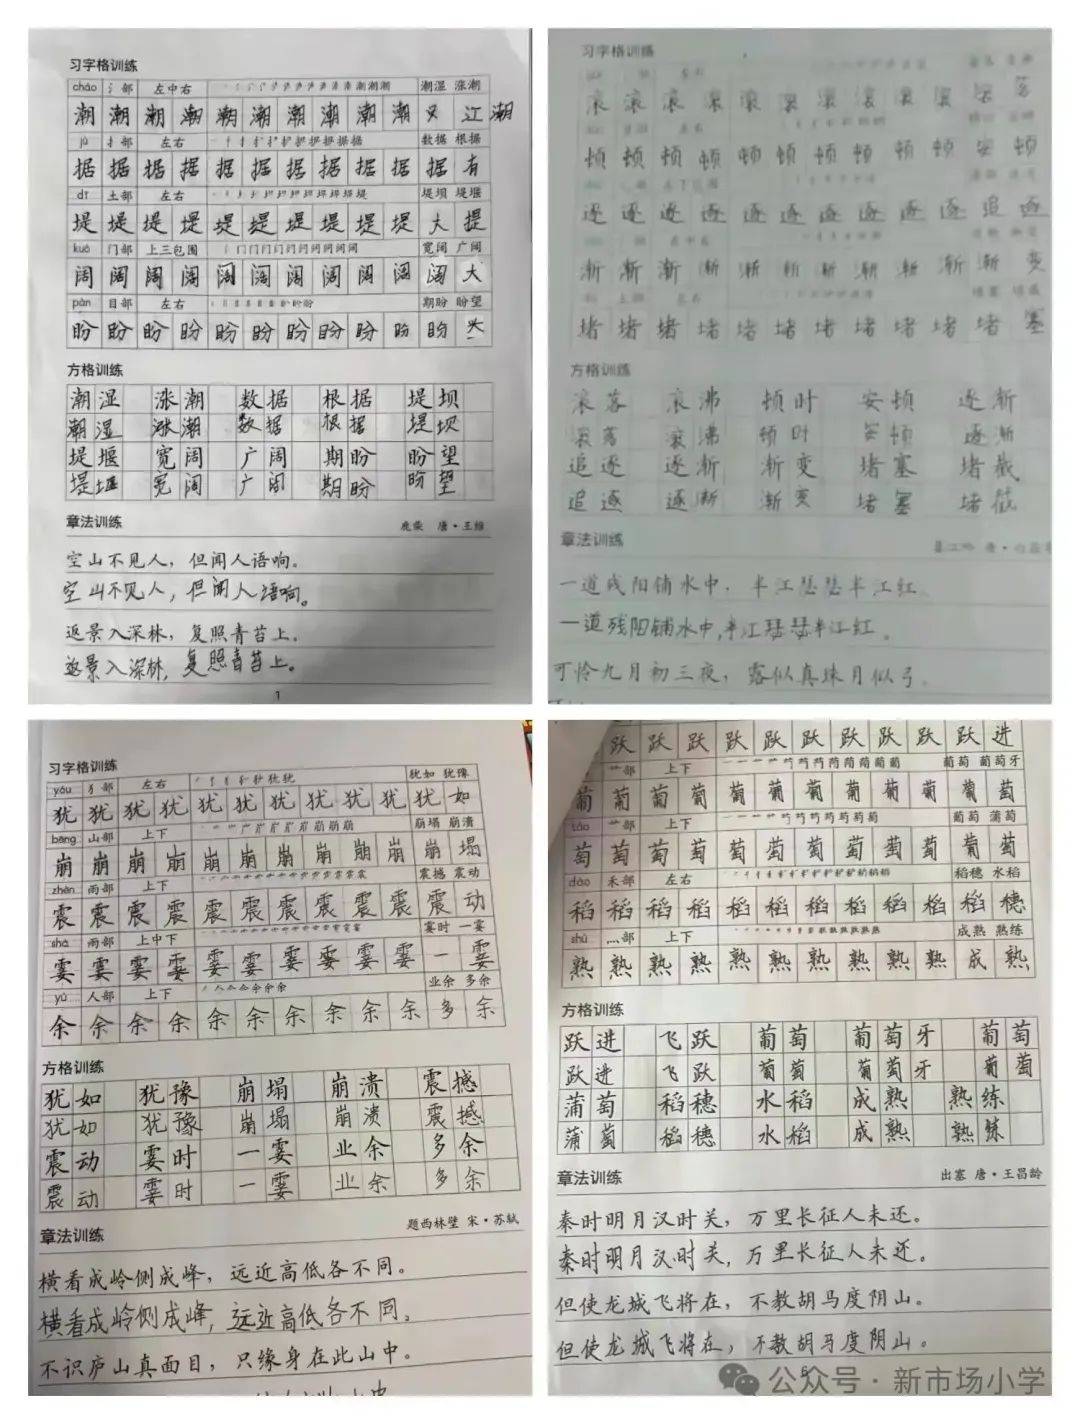 习字格训练
cháo 氵部 左中右 潮湿 涨潮
潮 潮 潮 潮 潮 潮 潮 潮 潮 又 江 潮
jù 扌部 左右 数据 根据
据 据 据 据 据 据 据 据 据 据 据 有
dī 土部 左右 堤坝 堤堰
堤 堤 堤 堤 堤 堤 堤 堤 堤 堤 大 提
kuò 门部 上三包围 宽阔 广阔
阔 阔 阔 阔 阔 阔 阔 阔 阔 阔 阔 大
pàn 目部 左右 期盼 盼望
盼 盼 盼 盼 盼 盼 盼 盼 盼 盼 盼
方格训练
潮湿 涨潮 数据 根据 堤坝
潮湿 涨潮 数据 根据 堤坝
堤堰 宽阔 广阔 期盼 盼望
堤堰 宽阔 广阔 期盼 盼望
章法训练
鹿柴 唐·王维
空山不见人，但闻人语响。
空山不见人，但闻人语响。
返景入深林，复照青苔上。
返景入深林，复照青苔上。
1
习字格训练
滚 滚 滚 滚 滚 滚 滚 滚 滚 滚 滚 落
顿 顿 顿 顿 顿 顿 顿 顿 顿 顿 安 顿
逐 逐 逐 逐 逐 逐 逐 逐 逐 逐 追 逐
渐 渐 渐 渐 渐 渐 渐 渐 渐 渐 渐 变
堵 堵 堵 堵 堵 堵 堵 堵 堵 堵 堵 塞
方格训练
滚落 滚沸 顿时 安顿 逐渐
滚落 滚沸 顿时 安顿 逐渐
追逐 逐渐 渐变 堵塞 堵截
追逐 逐渐 渐变 堵塞 堵截
章法训练
一道残阳铺水中，半江瑟瑟半江红。
一道残阳铺水中，半江瑟瑟半江红。
可怜九月初三夜，露似真珠月似弓。
习字格训练
yóu 犭部 左右 犹如 犹豫
犹 犹 犹 犹 犹 犹 犹 犹 犹 犹 犹 如
bēng 山部 上下 崩塌 崩溃
崩 崩 崩 崩 崩 崩 崩 崩 崩 崩 崩 塌
zhèn 雨部 上下 震撼 震动
震 震 震 震 震 震 震 震 震 震 震 动
shà 雨部 上中下 霎时 一霎
霎 霎 霎 霎 霎 霎 霎 霎 霎 霎 一 霎
yú 人部 上下 业余 多余
余 余 余 余 余 余 余 余 余 余 多 余
方格训练
犹如 犹豫 崩塌 崩溃 震撼
犹如 犹豫 崩塌 崩溃 震撼
震动 霎时 一霎 业余 多余
震动 霎时 一霎 业余 多余
章法训练
题西林壁 宋·苏轼
横看成岭侧成峰，远近高低各不同。
横看成岭侧成峰，远近高低各不同。
不识庐山真面目，只缘身在此山中。
跃 跃 跃 跃 跃 跃 跃 跃 跃 跃 进
艹部 上下 葡萄 葡萄牙
葡 葡 葡 葡 葡 葡 葡 葡 葡 葡 葡 萄
táo 艹部 上下 葡萄 蒲萄
萄 萄 萄 萄 萄 萄 萄 萄 萄 萄 葡 萄
dào 禾部 左右 稻穗 水稻
稻 稻 稻 稻 稻 稻 稻 稻 稻 稻 稻 穗
shú 灬部 上下 成熟 熟练
熟 熟 熟 熟 熟 熟 熟 熟 熟 熟 成 熟
方格训练
跃进 飞跃 葡萄 葡萄牙 葡萄
跃进 飞跃 葡萄 葡萄牙 葡萄
蒲萄 稻穗 水稻 成熟 熟练
蒲萄 稻穗 水稻 成熟 熟练
章法训练
出塞 唐·王昌龄
秦时明月汉时关，万里长征人未还。
秦时明月汉时关，万里长征人未还。
但使龙城飞将在，不教胡马度阴山。
但使龙城飞将在，不教胡马度阴山。
公众号·新市场小学